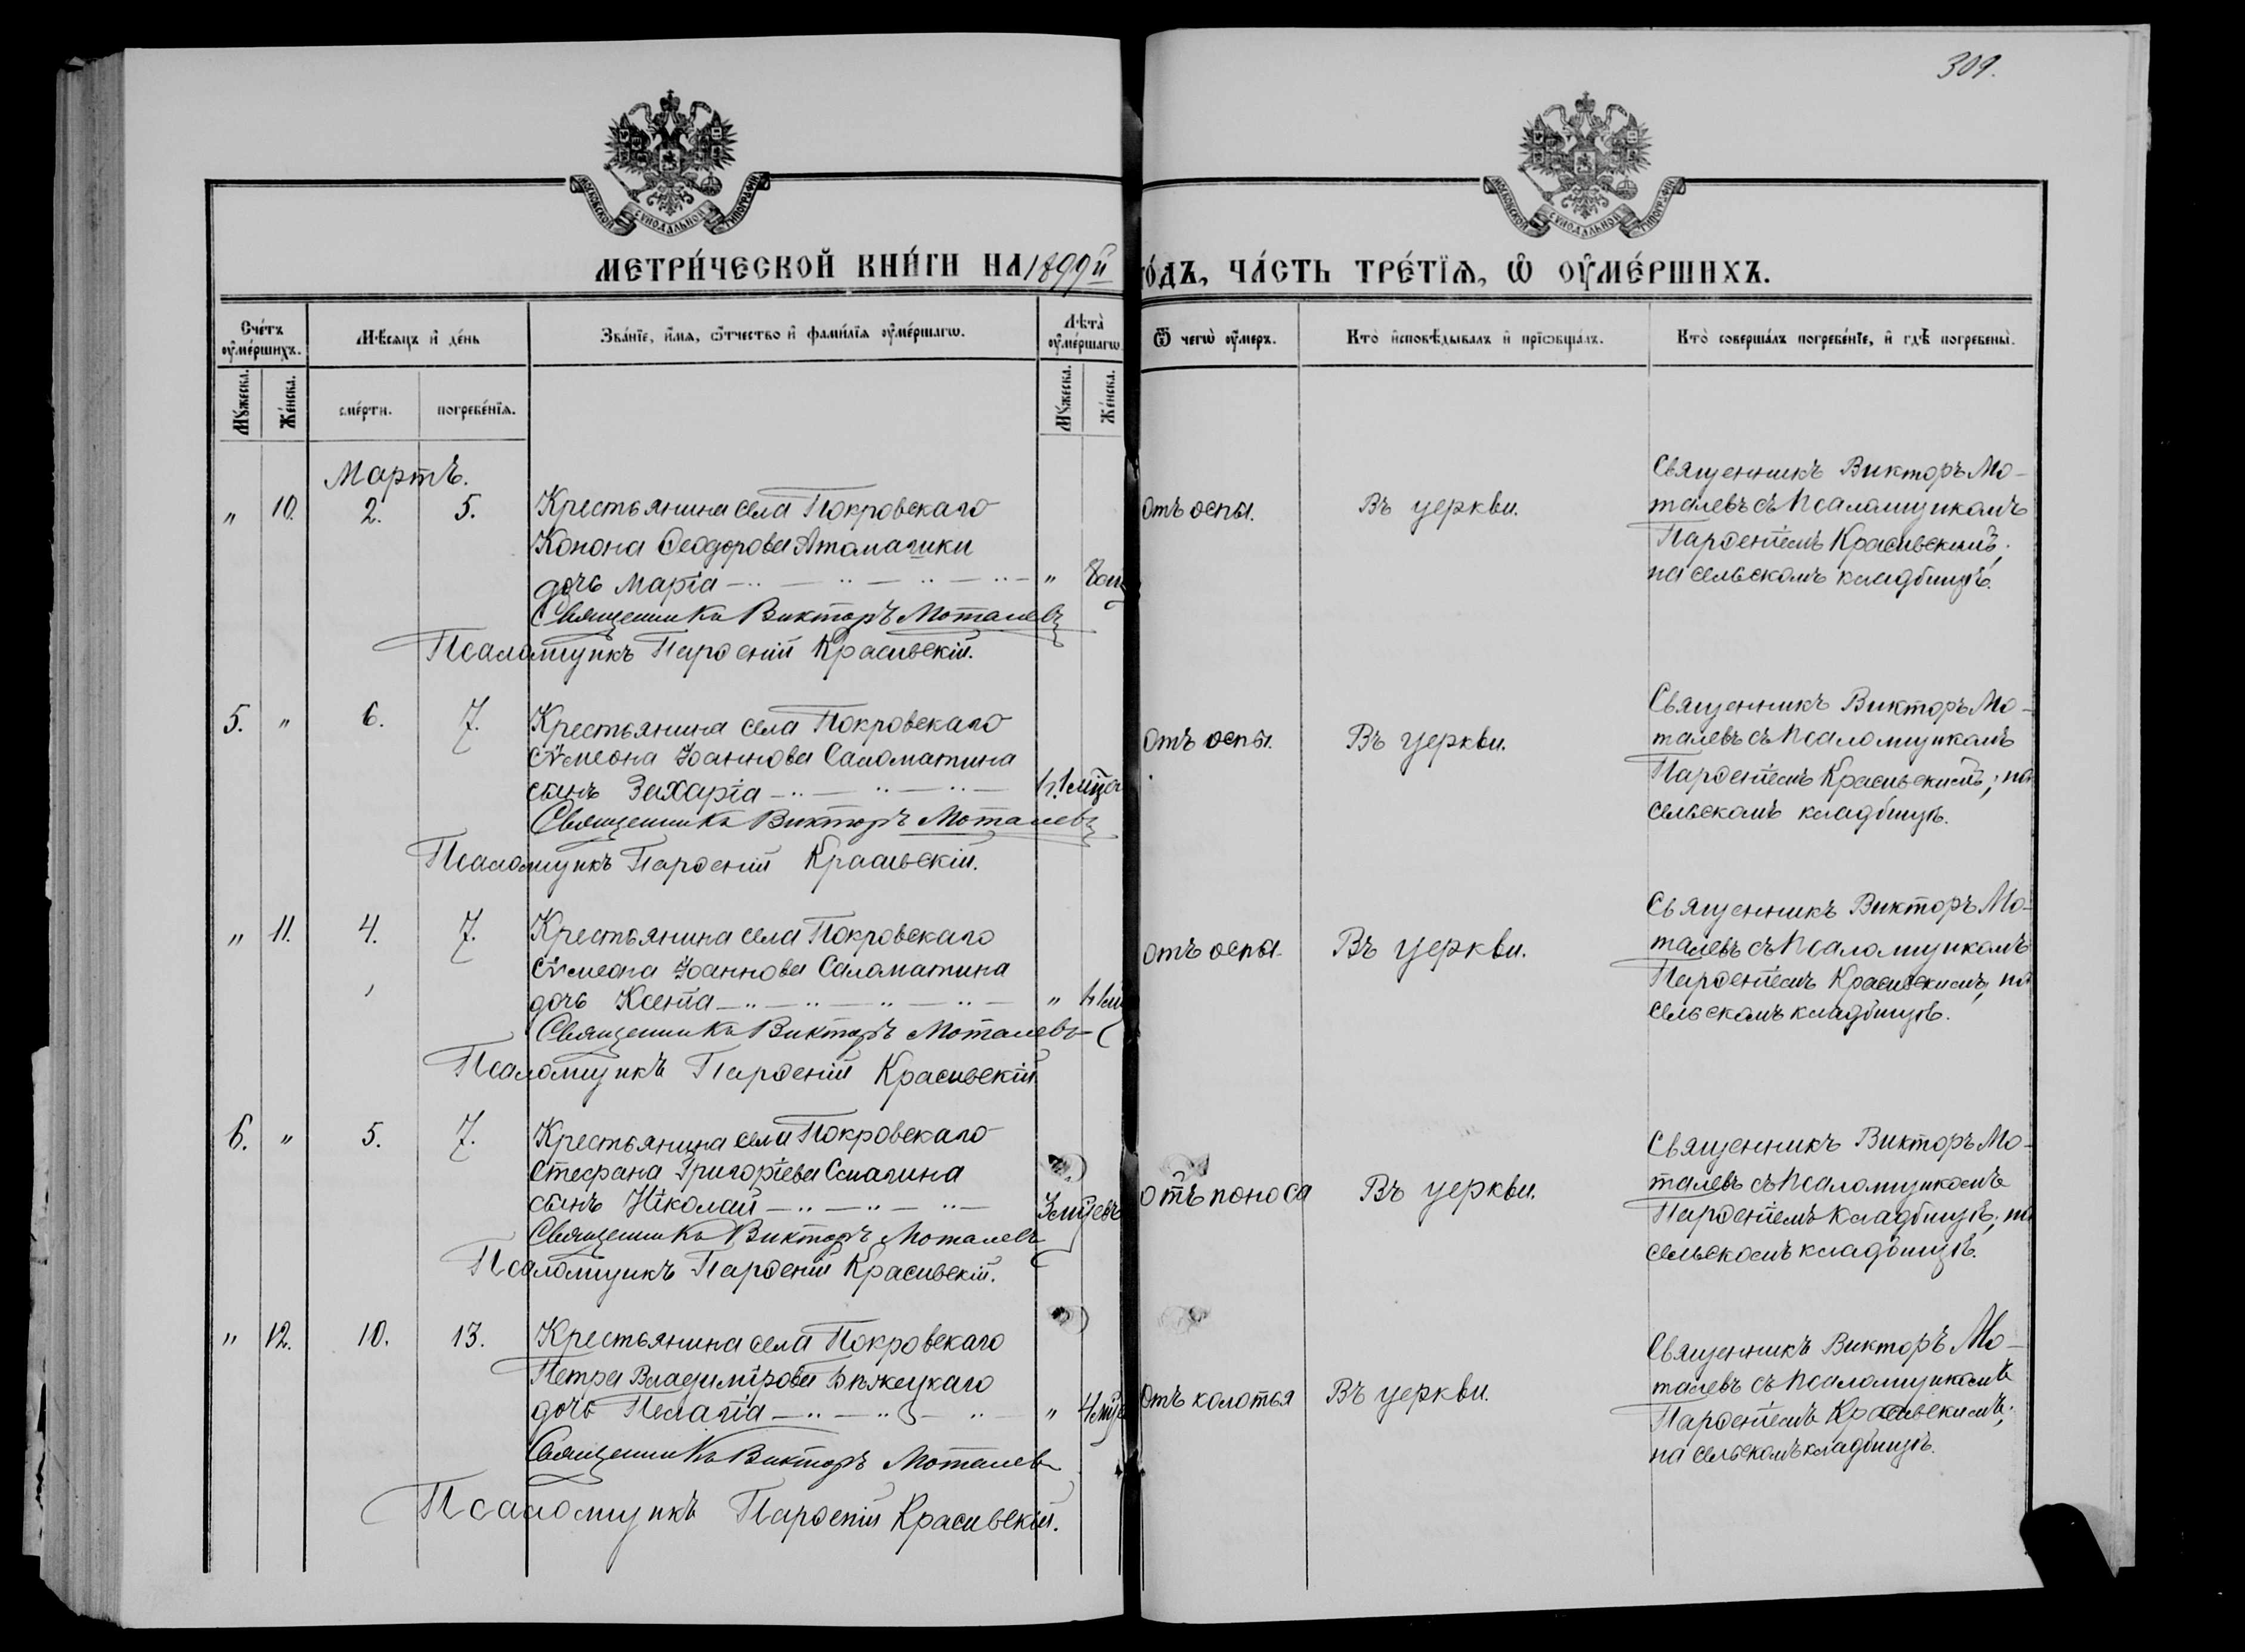 309.
МОСКОВСКОЙ СѴНОДАЛЬНОЙ ТИПОГРАФІИ
МОСКОВСКОЙ СѴНОДАЛЬНОЙ ТИПОГРАФІИ
МЕТРИ́ЧЕСКОЙ КНИ́ГИ НА 1899й го́дъ, ЧА́СТЬ ТРЕ́ТЇѦ, Ѡ ОУМЕ́РШИХЪ.
Сче́тъ оуме́ршихъ.
Мѣ́сяцъ и де́нь
Зва́нїе, и́мѧ, ѻ́тчество и фами́лїѧ оуме́ршагѡ.
Лѣта̀ оуме́ршагѡ
Ѿ чегѡ̀ оу́меръ.
Кто̀ и҆сповѣ́дывалъ и҆ прїѡбща́лъ.
Кто̀ соверша́лъ погребе́нїе, и҆ гдѣ̀ погребены̀.
Мꙋ́жеска.
Же́нска.
сме́рти.
погребе́нїѧ.
Мꙋ́жеска.
Же́нска.
Мартъ.
" 10. 2. 5. Крестьянина села Покровскаго
Конона Ѳеодорова Атамасики
дочь Марія " 8 мц
Священникъ Викторъ Моталевъ
Псаломщикъ Парѳеній Красивскій.
отъ оспы.
Въ церкви.
Священникъ Викторъ Мо-
талевъ съ псаломщикомъ
Парѳеніемъ Красивскимъ;
на сельскомъ кладбищѣ.
5. " 6. 7. Крестьянина села Покровскаго
Сѵмеона Іоаннова Саломатина
сынъ Захарія
Священникъ Викторъ Моталевъ
Псаломщикъ Парѳеній Красивскій.
отъ оспы.
Въ церкви.
Священникъ Викторъ Мо-
талевъ съ псаломщикомъ
Парѳеніемъ Красивскимъ; на
сельскомъ кладбищѣ.
" 11. 4. 7. Крестьянина села Покровскаго
Сѵмеона Іоаннова Саломатина
дочь Ксенія "
Священникъ Викторъ Моталевъ
Псаломщикъ Парѳеній Красивскій
отъ оспы.
Въ церкви.
Священникъ Викторъ Мо-
талевъ съ псаломщикомъ
Парѳеніемъ Красивскимъ; на
сельскомъ кладбищѣ.
6. " 5. 7. Крестьянина села Покровскаго
Стефана Григоріева Смагина
сынъ Николай 3 мцевъ
Священникъ Викторъ Моталевъ
Псаломщикъ Парѳеній Красивскій.
отъ поноса
Въ церкви.
Священникъ Викторъ Мо-
талевъ съ псаломщикомъ
Парѳеніемъ кладбищѣ; на
сельскомъ кладбищѣ.
" 12. 10. 13. Крестьянина села Покровскаго
Петра Владимірова Бѣжецкаго
дочь Пелагія " 4 мце
Священникъ Викторъ Моталевъ
Псаломщикъ Парѳеній Красивскій.
отъ колотья
Въ церкви.
Священникъ Викторъ Мо-
талевъ съ псаломщикомъ
Парѳеніемъ Красивскимъ;
на сельскомъ кладбищѣ.